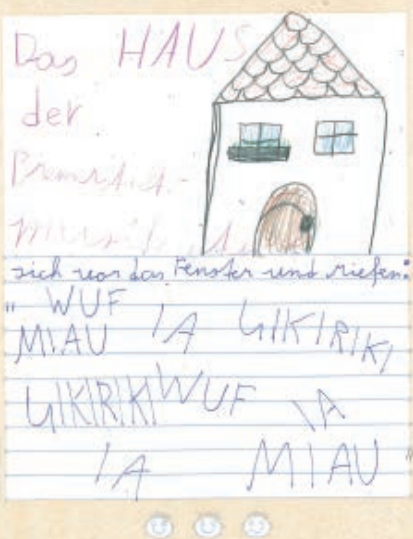 Das HAUS
der
Bremerstadt-
musikanten
sich vor das Fenster und riefen:
" WUF
MIAU IA GIKIRIKI
GIKIRIKI WUF IA
IA MIAU "